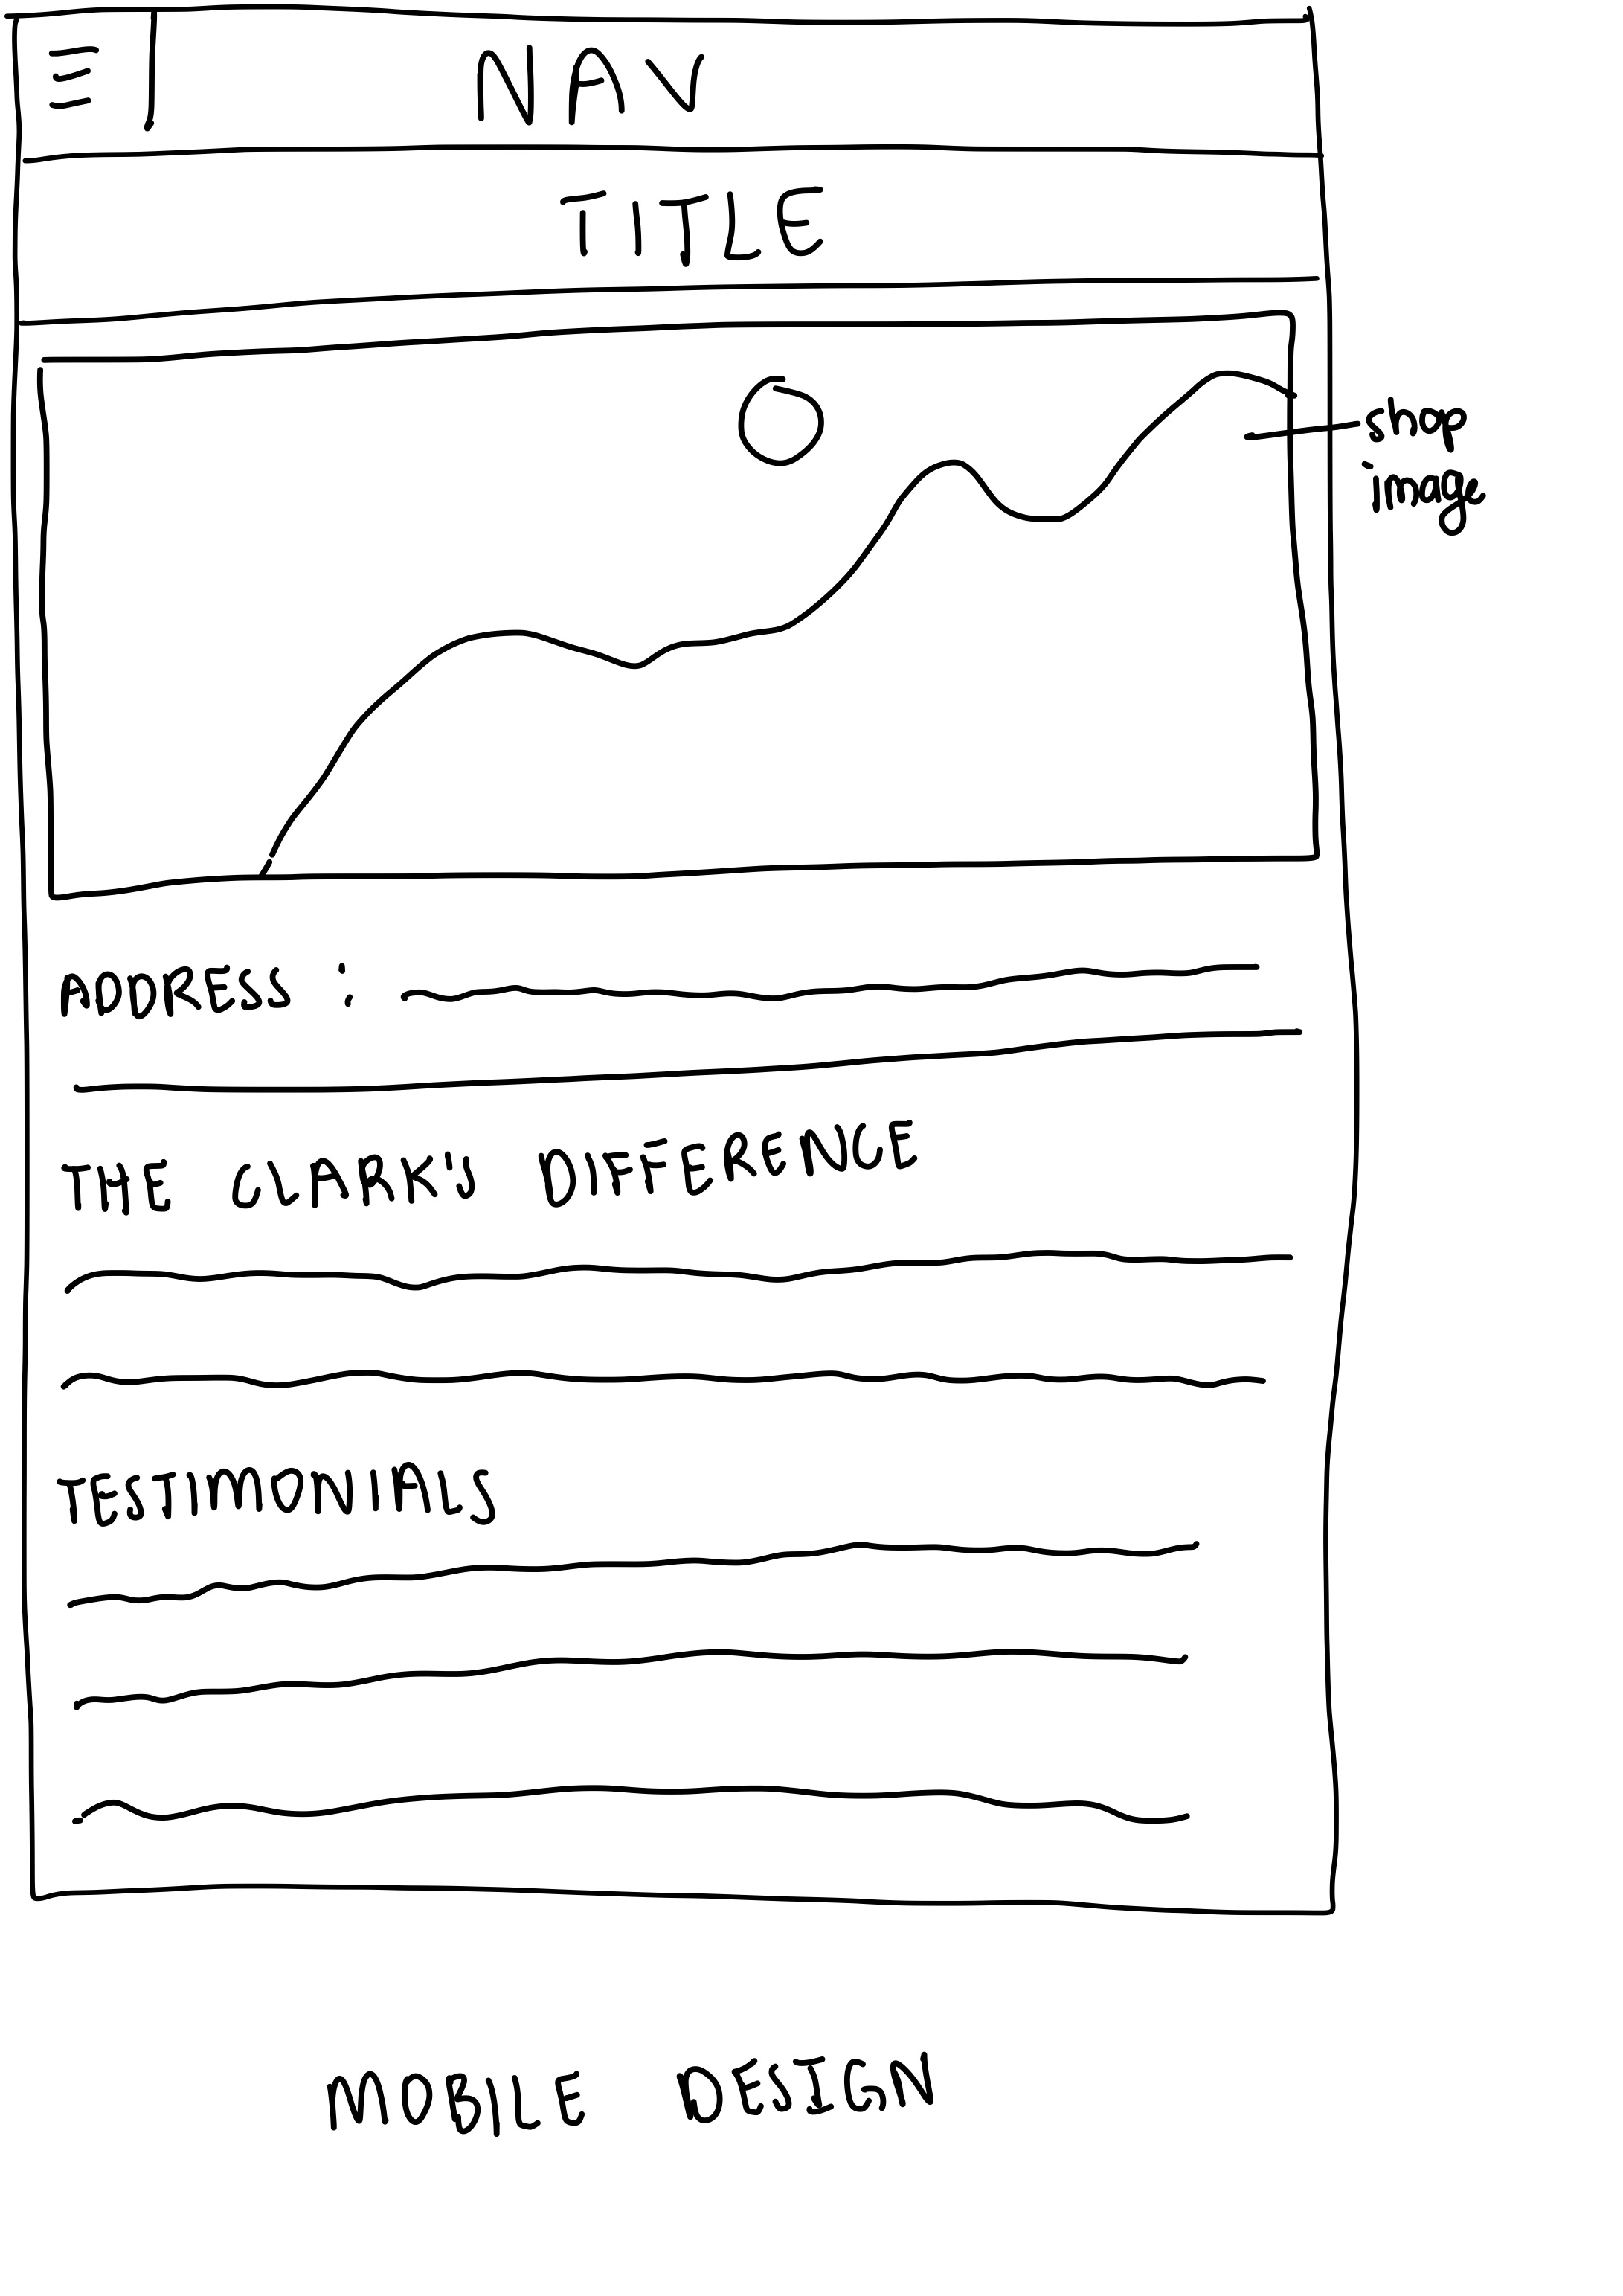 NAV
TITLE
shop
image
ADDRESS :
THE CLARK'S DIFFERENCE
TESTIMONIALS
MOBILE DESIGN